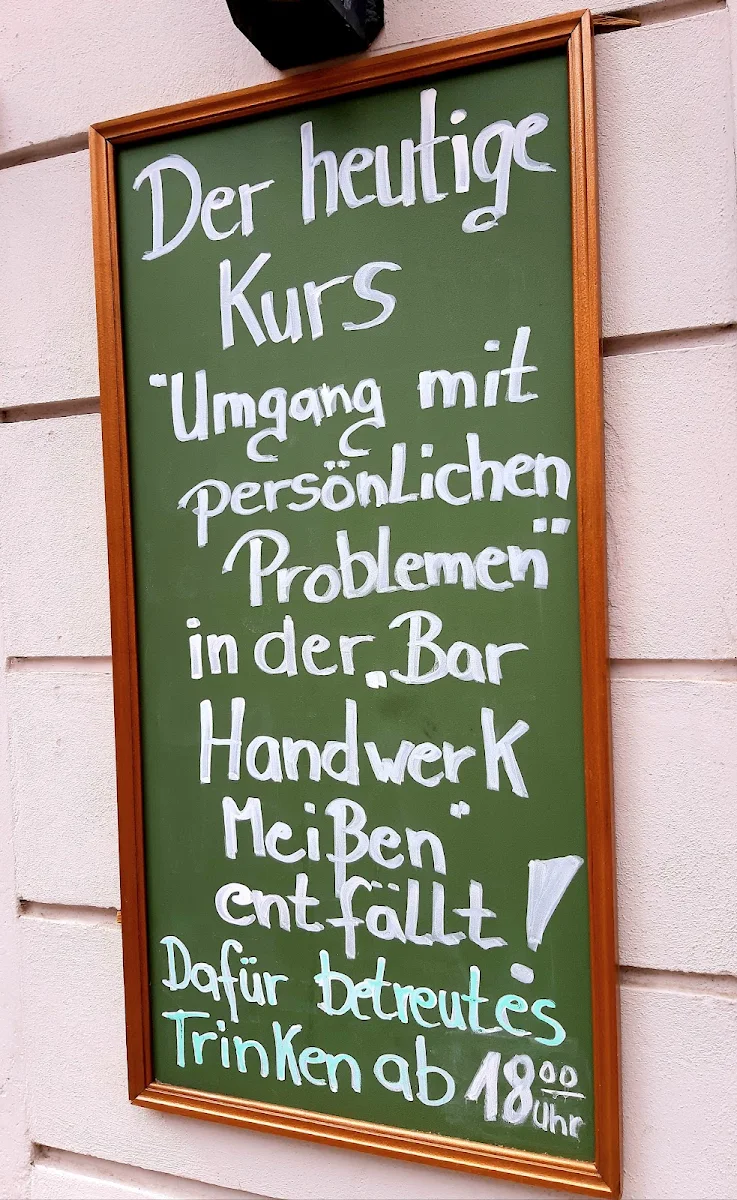 Der heutige
Kurs
"Umgang mit
persönlichen
Problemen"
in der „Bar
Handwerk
Meißen"
entfällt!
Dafür betreutes
Trinken ab 18⁰⁰
Uhr